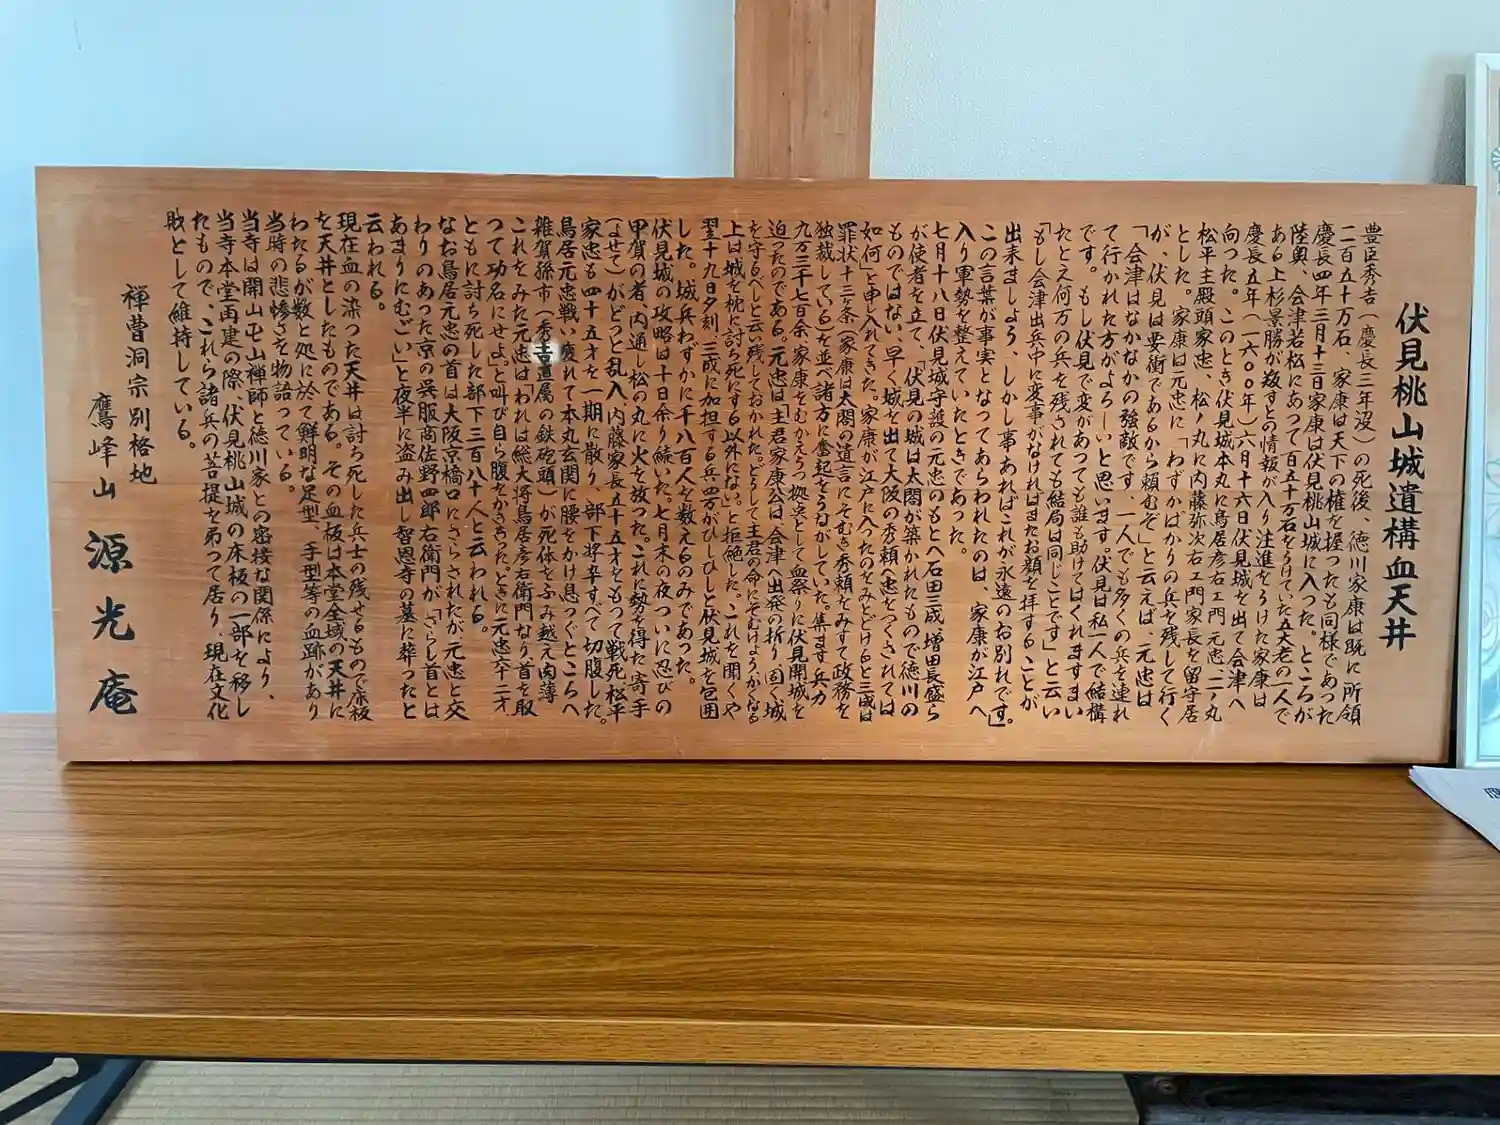 伏見桃山城遺構血天井
豊臣秀吉(慶長三年没)の死後、徳川家康は既に所領
二百五十万石、家康は天下の権を握ったも同様であった
慶長四年三月十三日家康は伏見桃山城に入った。ところが
陸奥、会津若松にあって百五十万石をうけていた五大老の一人で
ある上杉景勝が叛すとの情報が入り注進をうけた家康は
慶長五年(一六〇〇年)六月十六日伏見城を出て会津へ
向った。このとき伏見城本丸に鳥居彦右ェ門元忠、二ノ丸
松平主殿頭家忠、松ノ丸に内藤弥次右ェ門家長を留守居
とした。家康は元忠に「わずかばかりの兵を残して行く
が、伏見は要衝であるから頼むぞ」と云えば、元忠は
「会津はなかなかの強敵です、一人でも多くの兵を連れ
て行かれた方がよろーいと思います。伏見は私一人で結構
です。もし伏見で変があっても誰も助けてはくれますまい
たとえ何万の兵を残されても結局は同じことです」と云い
「もし会津出兵中に変事がなければまたお顔を拝することが
出来ましょう、しかし事あればこれが永遠のお別れです」。
この言葉が事実となってあらわれたのは、家康が江戸へ
入り軍勢を整えていたときであった。
七月十八日伏見城守護の元忠のもとへ石田三成、増田長盛ら
が使者を立て、「伏見の城は太閤が築かれたもので徳川の
ものではない、早く城を出て大阪の秀頼へ忠をつくされては
如何」と申し入れてきた。家康が江戸に入ったのをみとどけると三成は
罪状十三ヶ条(家康は太閤の遺言にそむき秀頼をみすて政務を
独裁している)を並べ諸方に奮起をうながしていた。集まる兵力
九万三千七百余、家康をむかえうつ拠点として血祭りに伏見開城を
迫ったのである。元忠は「主君家康公は会津へ出発の折り、固く城
を守るべしと云い残しておかれた。どうして主君の命にそむけようかくなる
上は城を枕に討ち死にする以外にない。」と拒絶した。これを聞くや
翌十九日夕刻、三成に加担する兵四万がひしひしと伏見城を包囲
した。城兵わずかに千八百人を数えるのみであった。
伏見城の攻略は十日余り続いた。七月末の夜ついに忍びの
甲賀の者、内通し松の丸に火を放った。これに勢を得た寄手
(よせて)がどっと乱入、内藤家長五十五才をもって戦死、松平
家忠も四十五才を一期に散り、部下将卒すべて切腹した。
鳥居元忠戦い疲れて本丸玄関に腰をかけ息つぐところへ
雑賀孫市(秀吉直属の鉄砲頭)が死体をふみ越え肉薄
これをみた元忠は「われは総大将鳥居彦右衛門なり首を取
って功名にせよ」と叫び自ら腹をかききった。ときに元忠六十二才
ともに討ち死した部下三百八十人と云われる。
なお鳥居元忠の首は大阪京橋口にさらされたが、元忠と交
わりのあった京の呉服商佐野四郎右衛門が「さらし首とは
あまりにむごい」と夜半に盗み出し智恩寺の墓に葬ったと
云われる。
現在血の染った天井は討ち死した兵士の残せるもので床板
を天井としたものである。その血板は本堂全域の天井に
わたるが数ヶ処に於て鮮明な足型、手型等の血跡があり
当時の悲惨さを物語っている。
当寺は開山卍山禅師と徳川家との密接な関係により、
当寺本堂再建の際、伏見桃山城の床板の一部を移し
たもので、これら諸兵の菩提を弔って居り、現在文化
財として維持している。
禅曹洞宗別格地
鷹峰山 源光庵